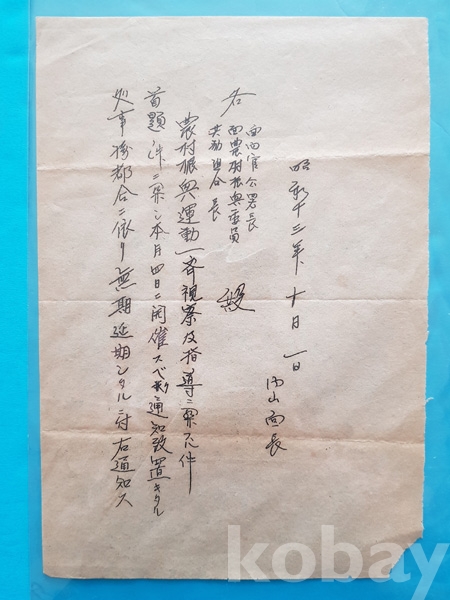 昭和十三年十月一日
内山面長
各
面内官公署長
面農村振興委員
共励組合長
殿
農村振興運動一斉視察及指導ニ関スル件
首題ノ件ニ関シ本月四日ニ開催スベク通知致置キタル
処事務都合ニ依リ無期延期シタルニ付右通知ス
kobay